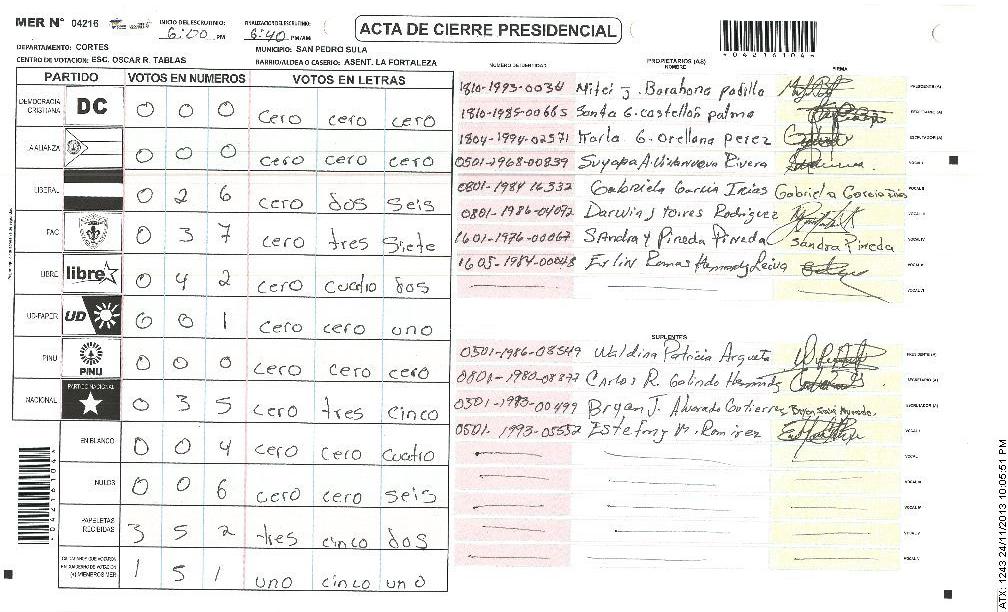 MER N° 04216
INICIO DEL ESCRUTINIO: 6:00 PM
FINALIZACION DEL ESCRUTINIO: 6:40 PM/AM
ACTA DE CIERRE PRESIDENCIAL
*04216104*
DEPARTAMENTO: CORTES
MUNICIPIO: SAN PEDRO SULA
CENTRO DE VOTACION: ESC. OSCAR R. TABLAS
BARRIO/ALDEA O CASERIO: ASENT. LA FORTALEZA
PARTIDO VOTOS EN NUMEROS VOTOS EN LETRAS
DEMOCRACIA CRISTIANA DC 0 0 0 cero cero cero
A ALIANZA 0 0 0 cero cero cero
LIBERAL 0 2 6 cero dos seis
PAC 0 3 7 cero tres siete
LIBRE libre 0 4 2 cero cuatro dos
UD-FAPER UD 0 0 1 cero cero uno
PINU PINU 0 0 0 cero cero cero
NACIONAL PARTIDO NACIONAL 0 3 5 cero tres cinco
EN BLANCO 0 0 4 cero cero cuatro
NULOS 0 0 6 cero cero seis
PAPELETAS RECIBIDAS 3 5 2 tres cinco dos
1 5 1 uno cinco uno
NUMERO DE IDENTIDAD PROPIETARIOS (AS) NOMBRE FIRMA
1810-1993-0034 Mitci J. Barahona padilla PRESIDENTE (A)
1810-1985-00665 Santa G. castellón palma SECRETARIO (A)
1804-1994-02571 Karla G. Orellana perez ESCRUTADOR (A)
0501-1968-00839 Suyapa A. Villanueva Rivera VOCAL I
0801-1984 16332 Gabriela García Irias Gabriela Garcia Irias VOCAL II
0801-1986-04092 Darwin J torres Rodriguez VOCAL III
1601-1976-00067 Sandra y Pineda Pineda Sandra Pineda VOCAL IV
1605-1984-00048 Erlin VOCAL V
VOCAL VI
SUPLENTES
0501-1986-08549 Waldina Patricia Argueta PRESIDENTE (A)
0801-1980-08877 Carlos R. Galindo SECRETARIO (A)
0501-1983-00499 Bryan J. Alvarado Gutierrez ESCRUTADOR (A)
0501-1993-05552 Estefany M. Ramirez VOCAL I
VOCAL II
VOCAL III
VOCAL IV
VOCAL V
*04216104*
ATX: 1243 24/11/2013 10:05:51 PM